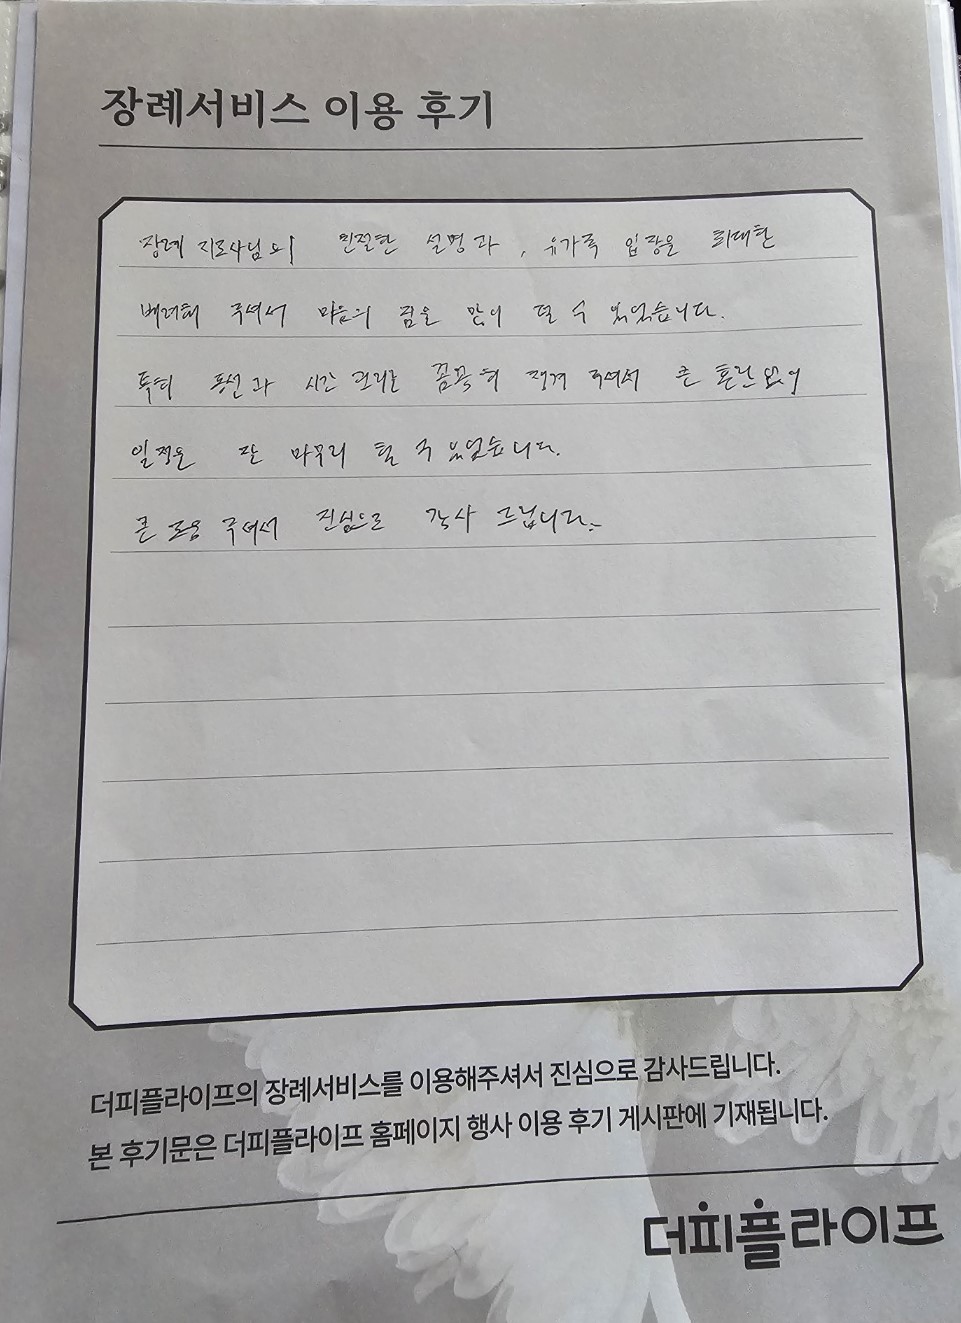 장례서비스 이용 후기
장례 지도사님의 친절한 설명과, 유가족 입장을 최대한
배려해 주셔서 마음의 짐을 많이 덜 수 있었습니다.
특히 동선과 시간 관리를 꼼꼼히 챙겨 주셔서 큰 혼란없이
일정을 잘 마무리 할 수 있었습니다.
큰 도움 주셔서 진심으로 감사 드립니다.
더피플라이프의 장례서비스를 이용해주셔서 진심으로 감사드립니다.
본 후기문은 더피플라이프 홈페이지 행사 이용 후기 게시판에 기재됩니다.
더피플라이프